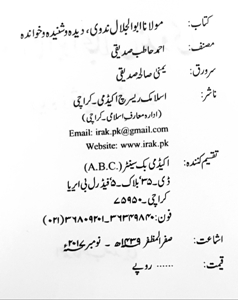 کتاب: مولانا ابوالجلال ندوی، دیدہ و شنیدہ و خواندہ
مصنف: احمد حاطب صدیقی
سرورق: یمنیٰ صالحہ صدیقی
ناشر: اسلامک ریسرچ اکیڈمی۔ کراچی
(ادارہ معارف اسلامی۔ کراچی)
Email: irak.pk@gmail.com
Website: www.irak.pk
تقسیم کنندہ: اکیڈمی بک سینٹر (A.B.C.)
ڈی۔۳۵، بلاک۔۵ فیڈرل بی ایریا
کراچی۔ ۷۵۹۵۰
فون: ۳۶۳۴۹۸۴۰۔ ۳۶۸۰۹۲۰۱ (۰۲۱)
اشاعت: صفر المظفر ۱۴۳۹ھ - نومبر ۲۰۱۷ء
قیمت: ...... روپے